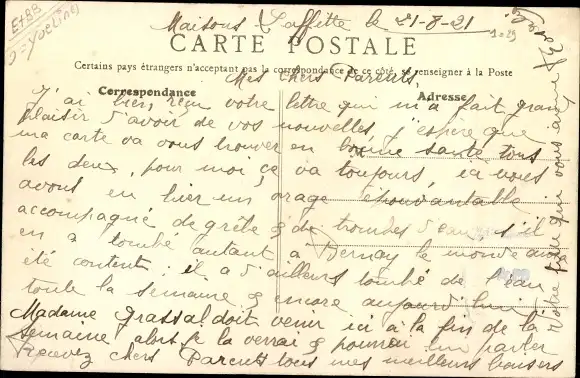 E+BB
(Yvelines)
Maisons Laffitte le 21-8-21
CARTE POSTALE
Certains pays étrangers n'acceptant pas la correspondance de ce côté, se renseigner à la Poste
Mes chers Parents,
Correspondance
Adresse
J'ai hier, reçu votre lettre qui m'a fait grand
plaisir d'avoir de vos nouvelles, j'espère que
ma carte va vous trouver en bonne santé tous
les deux, pour moi ça va toujours,
avons eu hier un orage épouvantable
accompagné de grêle & de trombes d'eau, s'il
en a tombé autant à Bernay le monde aura
été content. il a d'ailleurs tombé de l'eau
toute la semaine & encore aujourd'hui
Madame Grassal doit venir ici à la fin de la
semaine alors je la verrai & pourrai lui parler
Recevez chers Parents tous mes meilleurs baisers
Votre qui vous aime